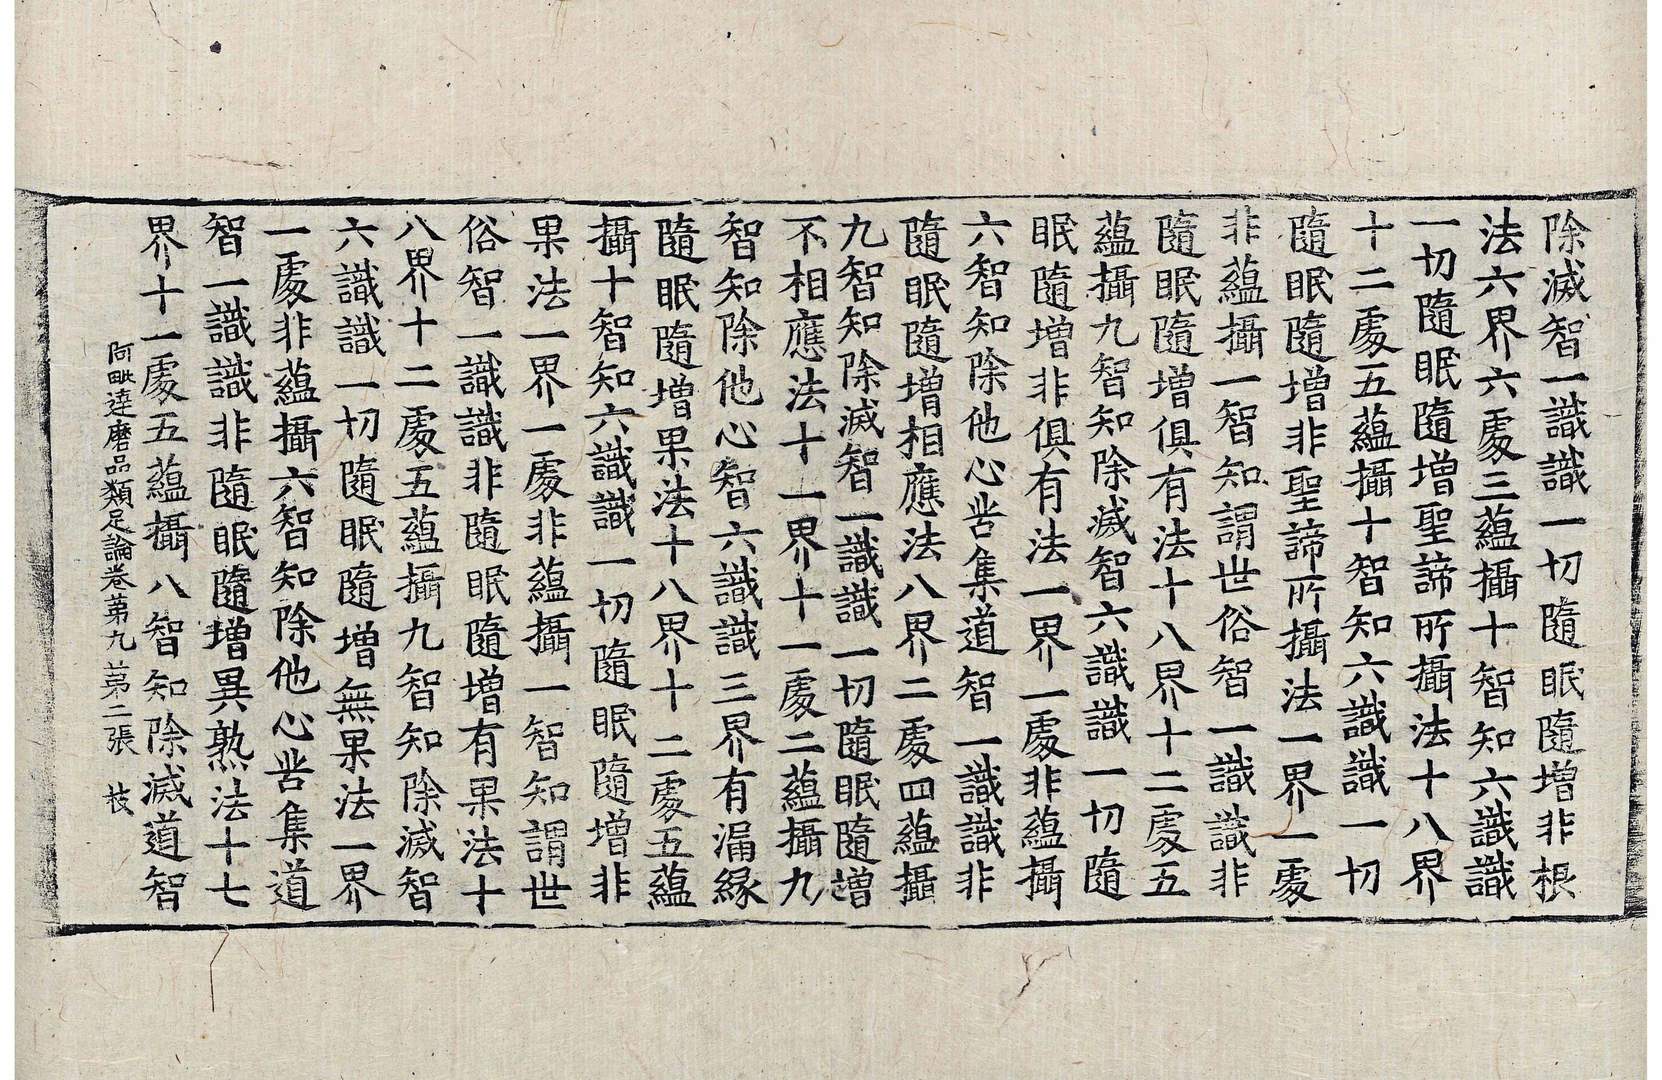 除滅智一識識一切隨眠隨增非根
法六界六處三蘊攝十智知六識識
一切隨眠隨增聖諦所攝法十八界
十二處五蘊攝十智知六識識一切
隨眠隨增非聖諦所攝法一界一處
非蘊攝一智知謂世俗智一識識非
隨眠隨增俱有法十八界十二處五
蘊攝九智知除滅智六識識一切隨
眠隨增非俱有法一界一處非蘊攝
六智知除他心苦集道智一識識非
隨眠隨增相應法八界二處四蘊攝
九智知除滅智一識識一切隨眠隨增
不相應法十一界十一處二蘊攝九
智知除他心智六識識三界有漏緣
隨眠隨增果法十八界十二處五蘊
攝十智知六識識一切隨眠隨增非
果法一界一處非蘊攝一智知謂世
俗智一識識非隨眠隨增有果法十
八界十二處五蘊攝九智知除滅智
六識識一切隨眠隨增無果法一界
一處非蘊攝六智知除他心苦集道
智一識識非隨眠隨增異熟法十七
界十一處五蘊攝八智知除滅道智
阿毗達磨品類足論卷第九 第二張 枝